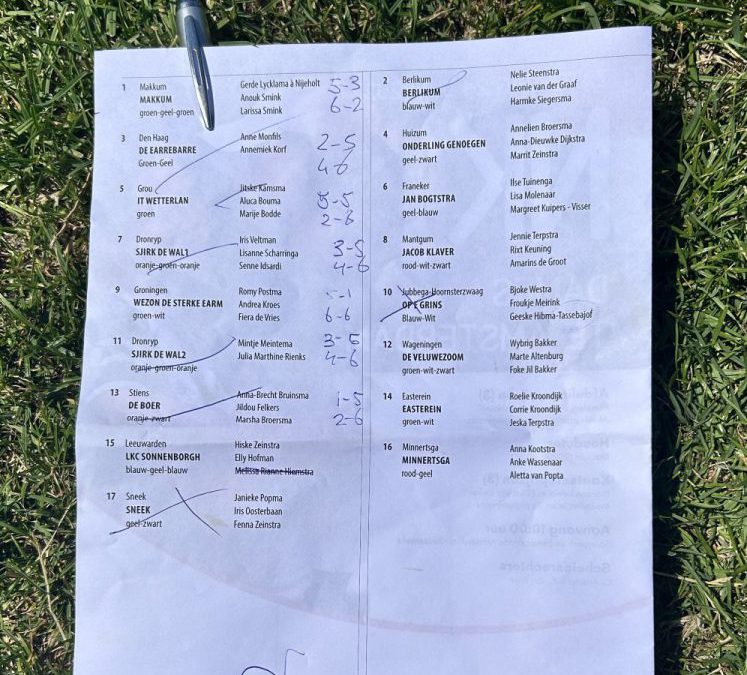 1 Makkum Gerde Lycklama à Nijeholt 5-3
MAKKUM Anouk Smink 6-2
groen-geel-groen Larissa Smink
2 Berlikum Nelie Steenstra
BERLIKUM Leonie van der Graaf
blauw-wit Harmke Siegersma
3 Den Haag Anne Monfils 2-5
DE EARREBARRE Annemiek Korf 4-6
Groen-Geel
4 Huizum Annelien Broersma
ONDERLING GENOEGEN Anna-Dieuwke Dijkstra
geel-zwart Marrit Zeinstra
5 Grou Jitske Kamsma 5-5
IT WETTERLAN Aluca Bouma 2-6
groen Marije Bodde
6 Franeker Ilse Tuinenga
JAN BOGTSTRA Lisa Molenaar
geel-blauw Margreet Kuipers - Visser
7 Dronryp Iris Veltman 3-5
SJIRK DE WAL1 Lisanne Scharringa 4-6
oranje-groen-oranje Senne Idsardi
8 Mantgum Jennie Terpstra
JACOB KLAVER Rixt Keuning
rood-wit-zwart Amarins de Groot
9 Groningen Romy Postma 5-1
WEZON DE STERKE EARM Andrea Kroes 6-6
groen-wit Fiera de Vries
10 Jubbega-Hoornsterzwaag Bjoke Westra
OP E GRINS Froukje Meirink
Blauw-Wit Geeske Hibma-Tassebajof
11 Dronryp Mintje Meintema 3-5
SJIRK DE WAL2 Julia Marthine Rienks 4-6
oranje-groen-oranje
12 Wageningen Wybrig Bakker
DE VELUWEZOOM Marte Altenburg
groen-wit-zwart Foke Jil Bakker
13 Stiens Anna-Brecht Bruinsma 1-5
DE BOER Jildou Felkers 2-6
oranje-zwart Marsha Broersma
14 Easterein Roelie Kroondijk
EASTEREIN Corrie Kroondijk
groen-wit Jeska Terpstra
15 Leeuwarden Hiske Zeinstra
LKC SONNENBORGH Elly Hofman
blauw-geel-blauw Melissa Rianne Hiemstra
16 Minnertsga Anna Kootstra
MINNERTSGA Anke Wassenaar
rood-geel Aletta van Popta
17 Sneek Janieke Popma
SNEEK Iris Oosterbaan
geel-zwart Fenna Zeinstra